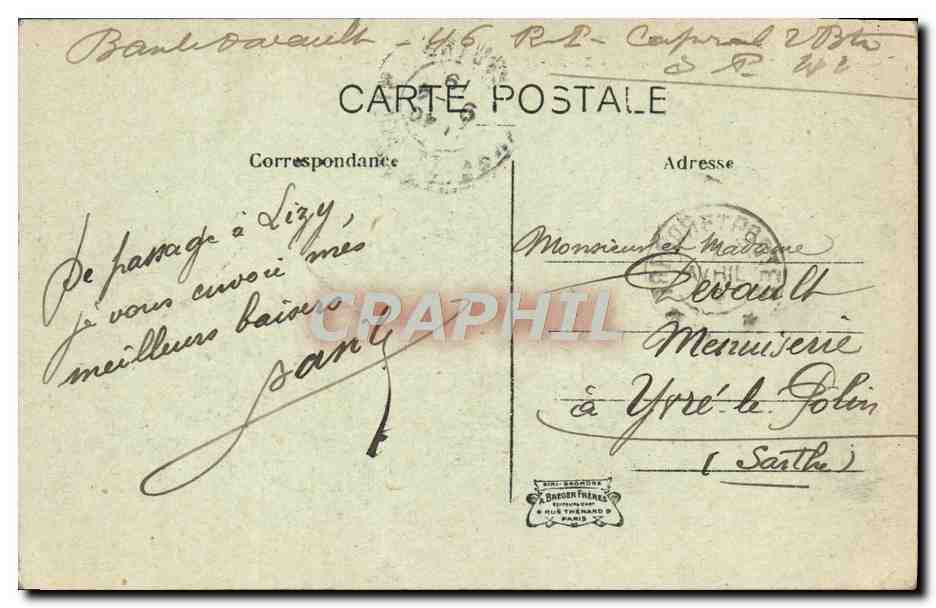 46 R.I - Caporal 2 Btn
S P. 42
CARTE POSTALE
Correspondance
Adresse
De passage à Lizy,
je vous envoie mes
meilleurs baisers
Monsieur et Madame
AVRIL
Devault
Menuiserie
à Yvré-le-Polin
(Sarthe)
CRAPHIL
A. BREGER FRÈRES
9 RUE THÉNARD 9
PARIS